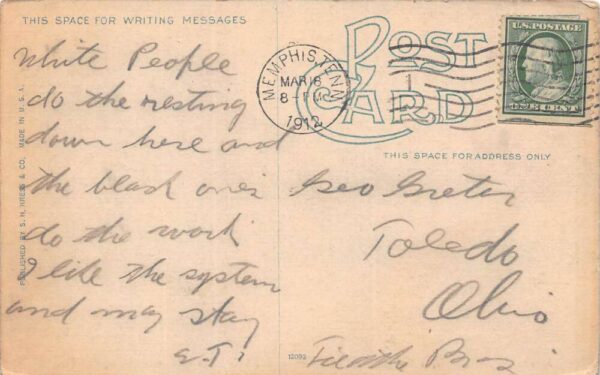 THIS SPACE FOR WRITING MESSAGES
White People
do the resting
down here and
the black ones
do the work
I like the system
and may stay
E.T.
PUBLISHED BY S. H. KRESS & CO. MADE IN U.S.A.
POST
CARD
MEMPHIS, TENN.
MAR 18
8-PM
1912
U.S. POSTAGE
ONE CENT
THIS SPACE FOR ADDRESS ONLY
Geo
Toledo
Ohio
12092
Bros